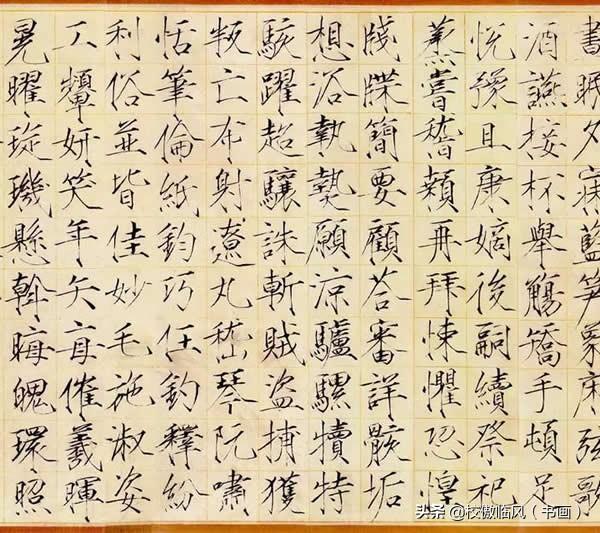 晝眠夕寐藍笋象床弦歌
酒讌接杯舉觴矯手頓足
悅豫且康嫡後嗣續祭祀
蒸嘗稽顙再拜悚懼恐惶
牋牒簡要顧荅審詳骸垢
想浴執熱願涼驢騾犢特
駭躍超驤誅斬賊盜捕獲
叛亡布射遼丸嵇琴阮嘯
恬筆倫紙鈞巧任釣釋紛
利俗並皆佳妙毛施淑姿
工顰妍笑年矢每催羲暉
晃曜璇璣懸斡晦魄環照
头条 @校傲临风（书画）